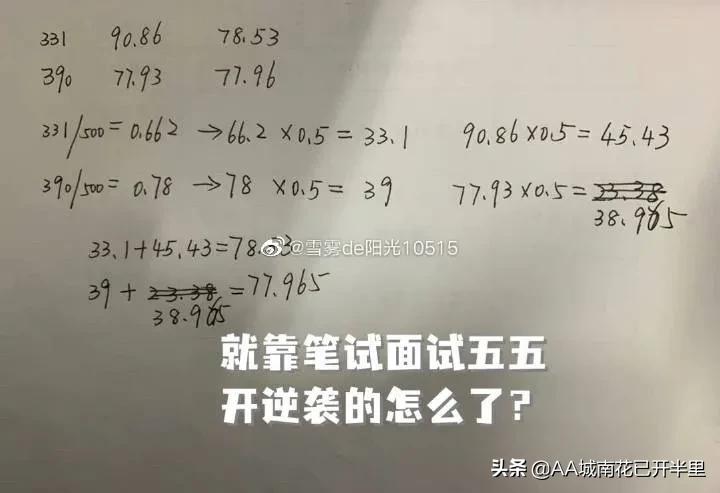 331 90.86 78.53
390 77.93 77.96
331/500=0.662 →66.2 ×0.5=33.1 90.86×0.5=45.43
390/500=0.78 →78 ×0.5=39 77.93×0.5=23.38
38.965
33.1+45.43=78.53
@雪雾de阳光10515
39+23.38=77.965
38.965
就靠笔试面试五五
开逆袭的怎么了?
头条 @AA城南花已开半里